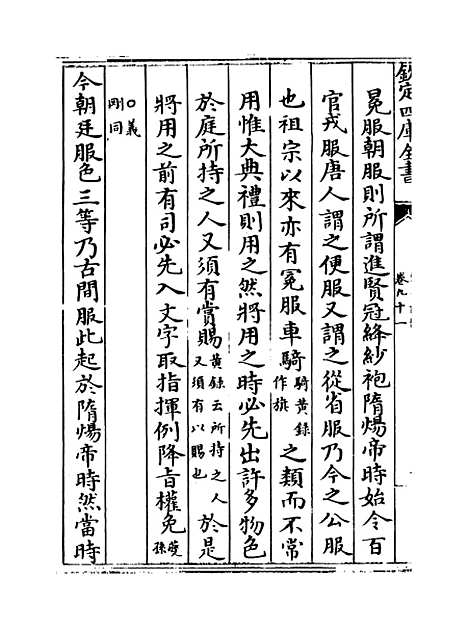 欽定四庫全書
卷九十一
冕服朝服則所謂進賢冠絳紗袍隋煬帝時始令百
官戎服唐人謂之便服又謂之從省服乃今之公服
也祖宗以來亦有冕服車騎騎黃録作旗之類而不常
用惟大典禮則用之然將用之時必先出許多物色
於庭所持之人又須有賞賜黃録云所持之人又須有以賜也於是
將用之前有司必先入文字取指揮例降旨權免夔孫
○義剛同
今朝廷服色三等乃古間服此起於隋煬帝時然當時